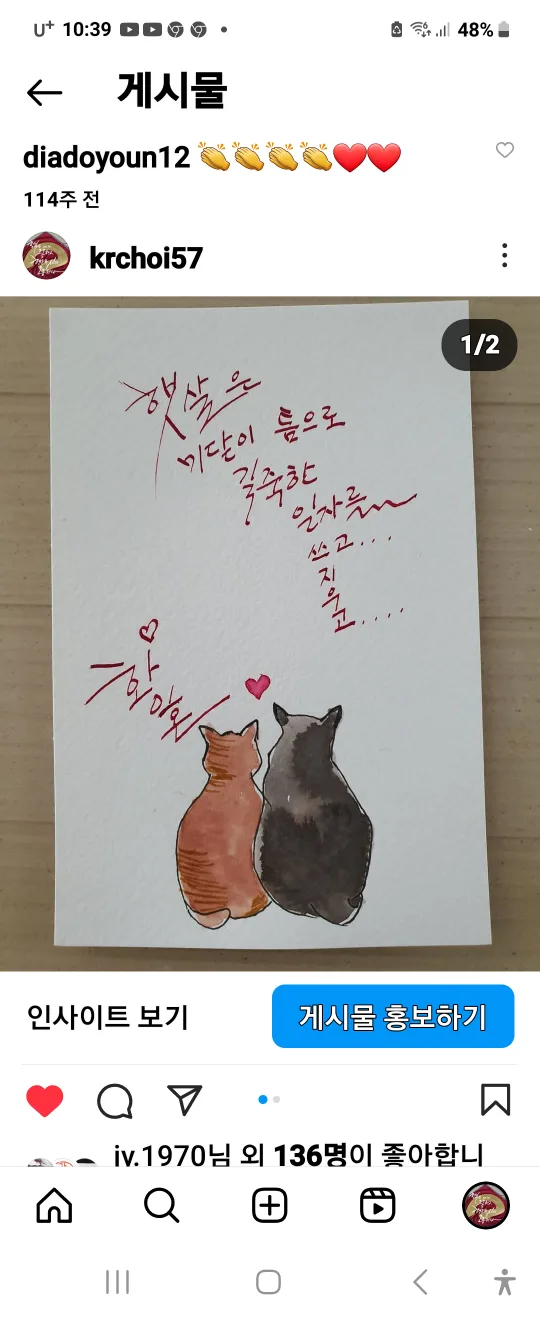 U+ 10:39 48%
게시물
diadoyoun12 👏👏👏👏❤️❤️
114주 전
krchoi57
1/2
햇살은
미닫이 틈으로
길죽한
일자를
쓰고...
지
우
고....
황혼
인사이트 보기
게시물 홍보하기
jv.1970님 외 136명이 좋아합니